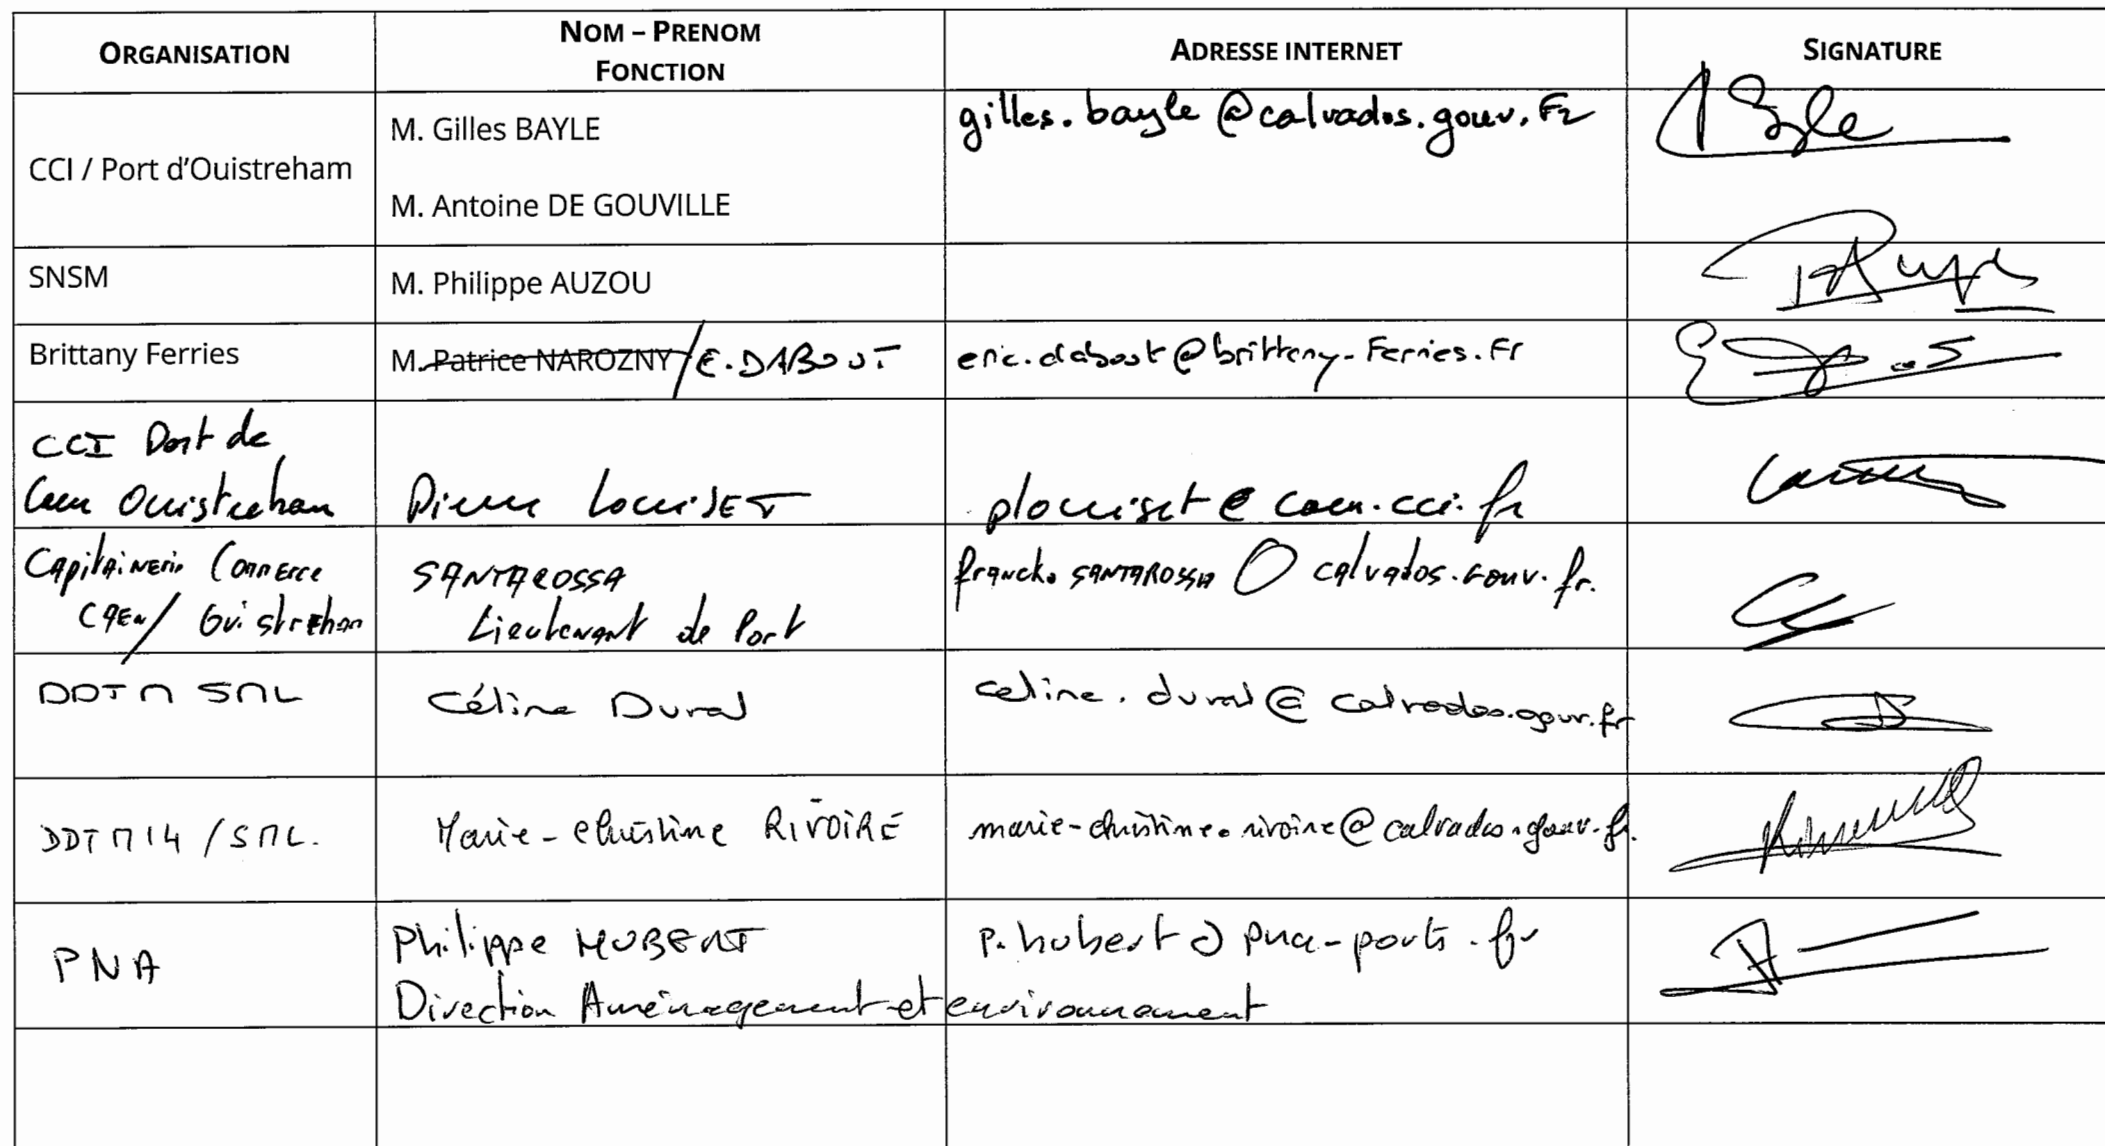 ORGANISATION
NOM – PRENOM
FONCTION
ADRESSE INTERNET
SIGNATURE
CCI / Port d'Ouistreham
M. Gilles BAYLE
gilles.bayle@calvados.gouv.Fr
M. Antoine DE GOUVILLE
SNSM
M. Philippe AUZOU
Brittany Ferries
M. Patrice NAROZNY/E.DABOUT
eric.dabout@brittany-Ferries.Fr
CCI Port de
Caen Ouistreham
Pierre LouiSET
plouiset@caen.cci.fr
Capitainerie Commerce
CAEN/Ouistreham
SANTAROSSA
Lieutenant de Port
franck.SANTAROSSA@calvados.gouv.fr.
DDTM SML
Céline Duval
celine.duval@calvados.gouv.fr
DDTM14/SML.
Marie-christine RIVOIRE
marie-christine.rivoire@calvados.gouv.fr.
PNA
Philippe HUBERT
Direction Aménagement et environnement
p.hubert@pna-ports.fr